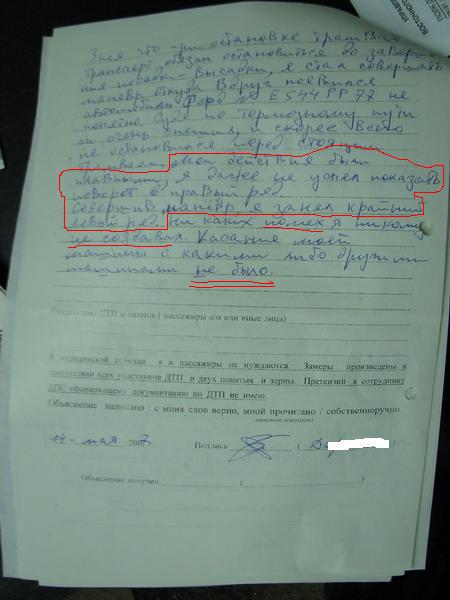 Зная что при остановке трамвая
транспорт обязан остановиться до заверше
ния посадки-высадки, я стал совершать
маневр. Откуда вдруг появился
автомобиль Форд № Е544РР77 не
понятно. Судя по тормозному пути
он очень спешил, и скорее всего
не остановился перед стоящим
трамваем. Мои действия были
плавными, я даже не успел показать
поворот в правый ряд
Совершив маневр, я занял крайний
левый ряд ни каких помех я никому
не создавал. Касание моей
машины с какими либо другими
машинами не было.
Свидетелями ДТП являются ( пассажиры а/м или иные лица)
В медицинской помощи я и пассажиры не нуждаются. Замеры произведены в
присутствии всех участников ДТП и двух понятых и верны. Претензий к сотруднику
ДПС оформляющему документацию по ДТП не имею.
Объяснение написано : с моих слов верно, мной прочитано / собственноручно.
(ненужное зачеркнуть)
14 - мая 2007 Подпись (
Объяснение получил ( )